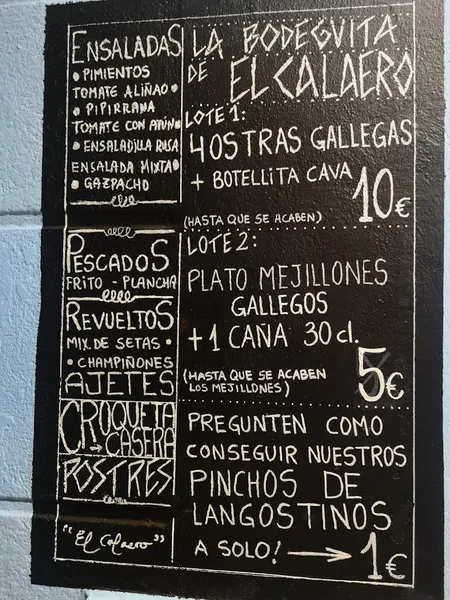 ENSALADAS
• PIMIENTOS
TOMATE ALIÑAO •
• PIPIRRANA
TOMATE CON ATÚN •
• ENSALADILLA RUSA
ENSALADA MIXTA •
• GAZPACHO
PESCADOS
FRITO - PLANCHA
REVUELTOS
MIX. DE SETAS •
• CHAMPIÑONES
AJETES
CROQUETA
CASERA
POSTRES
"El Calaero"
LA BODEGUITA
DE EL CALAERO
LOTE 1:
4 OSTRAS GALLEGAS
+ BOTELLITA CAVA
10€
(HASTA QUE SE ACABEN)
LOTE 2:
PLATO MEJILLONES
GALLEGOS
+ 1 CAÑA 30 cl.
(HASTA QUE SE ACABEN
LOS MEJILLONES)
5€
PREGUNTEN COMO
CONSEGUIR NUESTROS
PINCHOS DE
LANGOSTINOS
A SOLO! → 1€